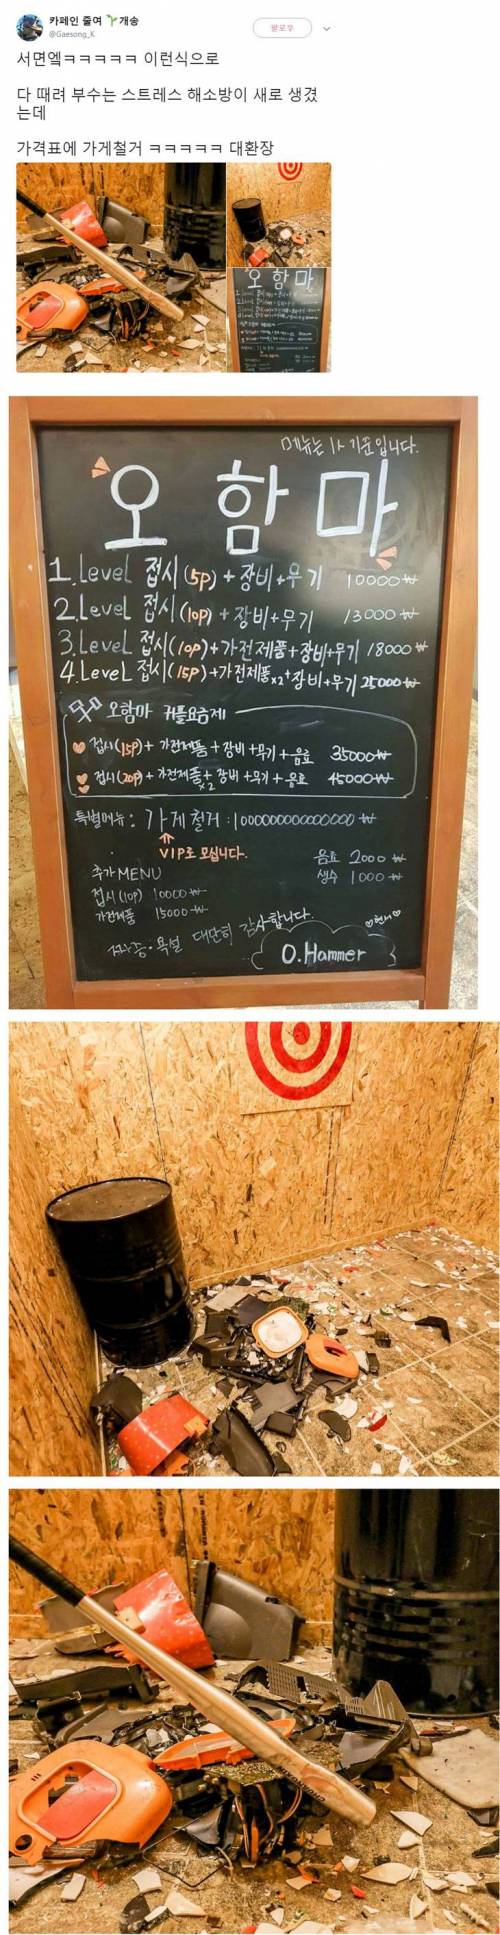 카페인 줄여 🌱개송
@Gaesong_K
팔로우
서면엨ㅋㅋㅋㅋㅋ 이런식으로
다 때려 부수는 스트레스 해소방이 새로 생겼
는데
가격표에 가게철거 ㅋㅋㅋㅋㅋ 대환장
오함마
메뉴는 1人 기준입니다.
오함마
1.Level 접시(5p)+장비+무기 10000₩
2.Level 접시(10p)+장비+무기 13000₩
3.Level 접시(10p)+가전제품+장비+무기 18000₩
4.Level 접시(15p)+가전제품x2+장비+무기 25000₩
오함마 커플요금제
접시(15p)+가전제품+장비+무기+음료 35000₩
접시(20p)+가전제품x2+장비+무기+음료 45000₩
특별메뉴: 가게철거:1000000000000000₩
VIP로 모십니다.
음료 2000₩
생수 1000₩
추가MENU
접시(10p) 10000₩
가전제품 15000₩
짜증·욕설 대단히 감사합니다.
O.Hammer